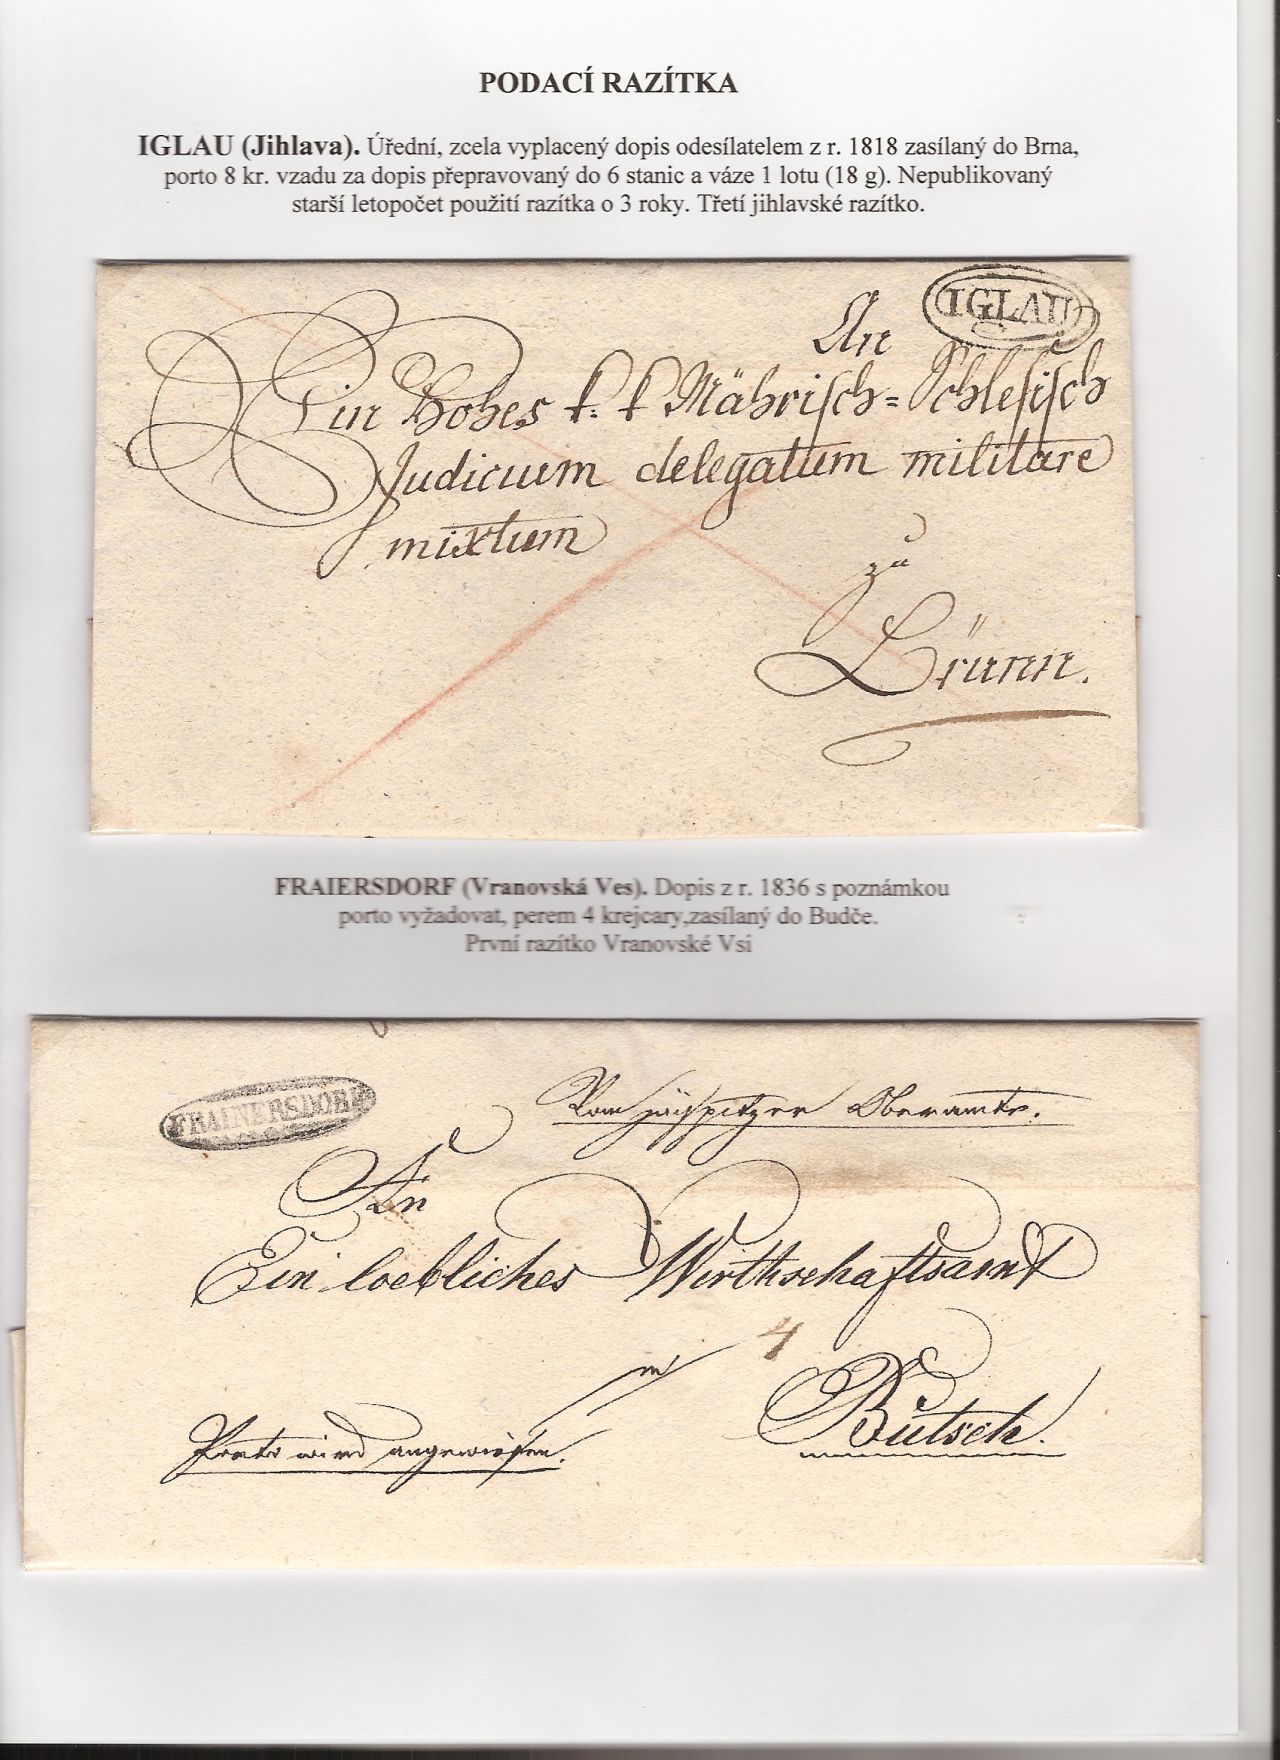 PODACÍ RAZÍTKA
IGLAU (Jihlava). Úřední, zcela vyplacený dopis odesílatelem z r. 1818 zasílaný do Brna,
porto 8 kr. vzadu za dopis přepravovaný do 6 stanic a váze 1 lotu (18 g). Nepublikovaný
starší letopočet použití razítka o 3 roky. Třetí jihlavské razítko.
IGLAU
An
Ein Hohes k: k Mährisch=Schlesisch
Judicium delegatum militare
mixtum
zu
Brünn.
FRAIERSDORF (Vranovská Ves). Dopis z r. 1836 s poznámkou
porto vyžadovat, perem 4 krejcary,zasílaný do Budče.
První razítko Vranovské Vsi
FRAINERSDORF
Vom Oberamte.
An
Ein loebliches Wirthschaftsamt
4
Butsch.
Porto wird angewiesen.